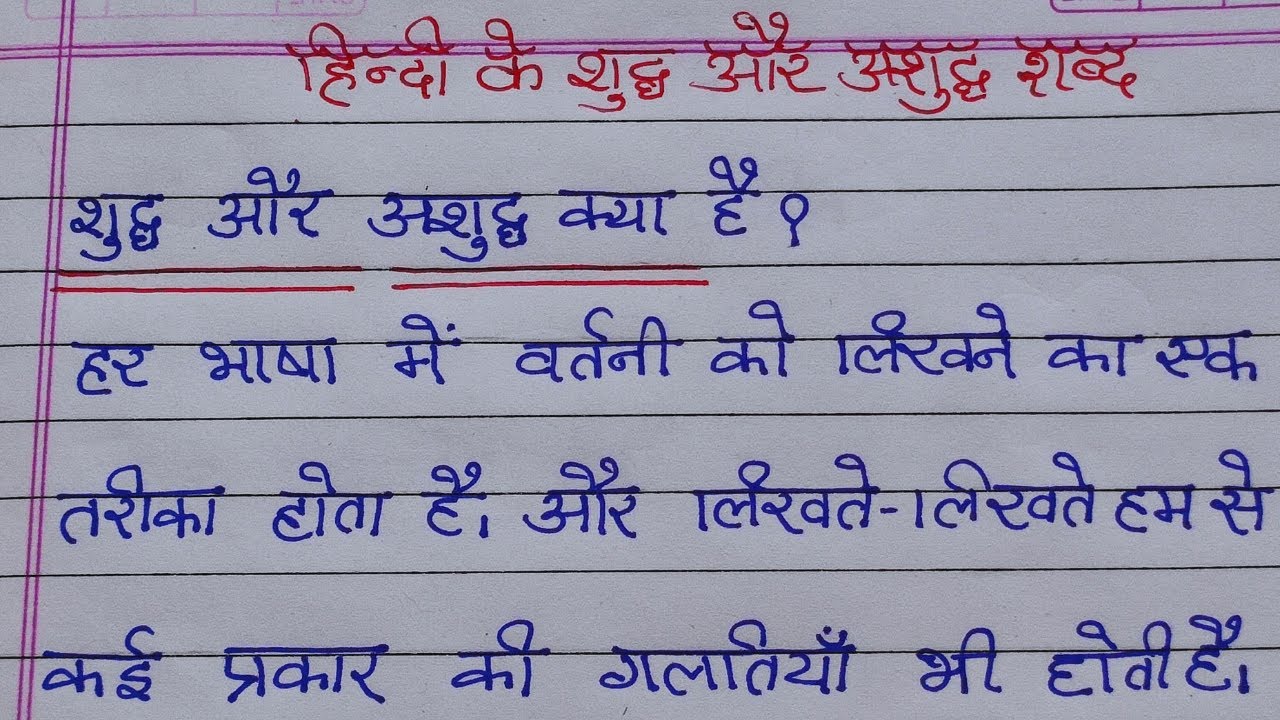 हिन्दी के शुद्ध और अशुद्ध शब्द
शुद्ध और अशुद्ध क्या है ?
हर भाषा में वर्तनी को लिखने का एक
तरीका होता है। और लिखते-लिखते हम से
कई प्रकार की गलतियाँ भी होती है।